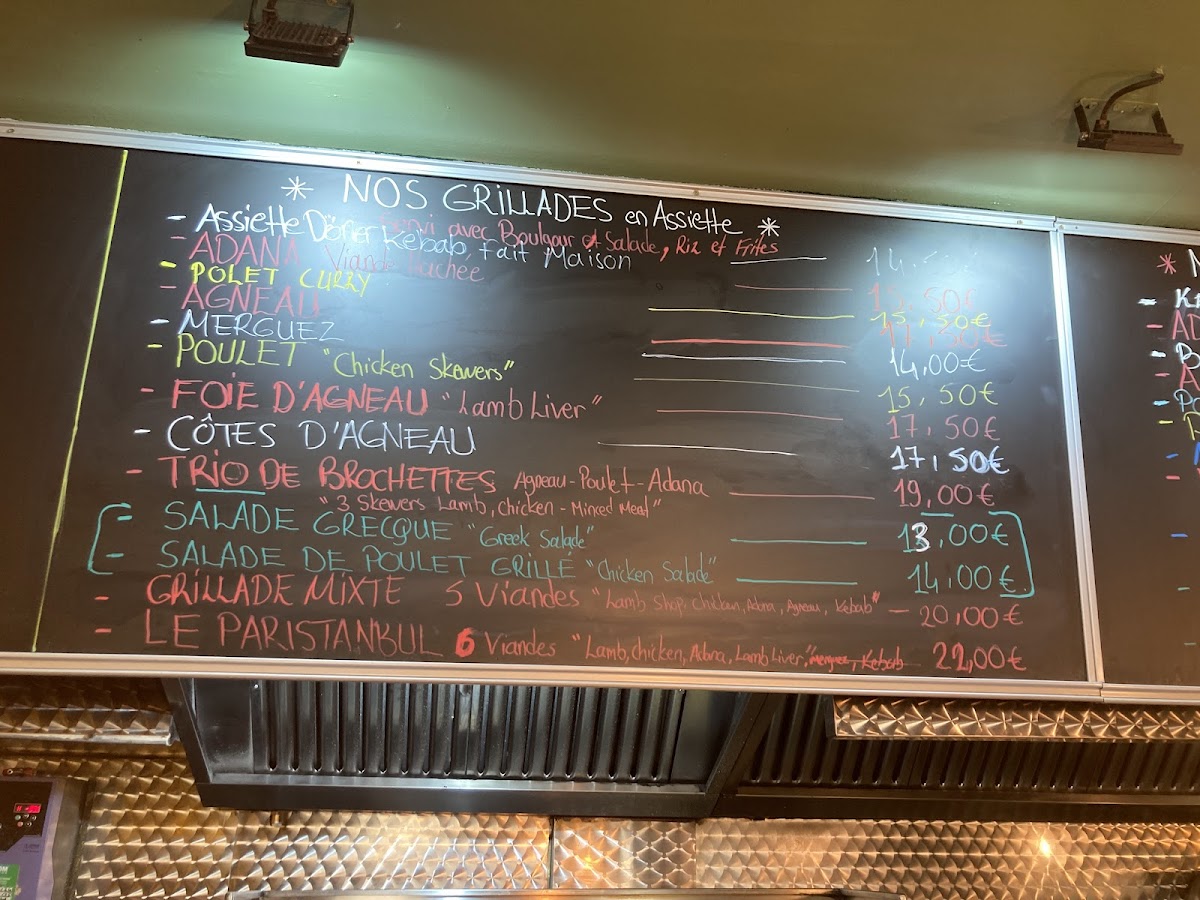 * NOS GRILLADES en Assiette *
Servi avec Boulgour et Salade, Riz et Frites
- Assiette Döner Kebab, fait Maison
- ADANA Viande Hachée 15,50€
- POLET CURRY 15,50€
- AGNEAU 17,50€
- MERGUEZ 14,00€
- POULET "Chicken Skewers" 15,50€
- FOIE D'AGNEAU "Lamb Liver" 17,50€
- CÔTES D'AGNEAU 17,50€
- TRIO DE BROCHETTES Agneau-Poulet-Adana 19,00€
"3 Skewers Lamb, Chicken - Minced Meat"
- SALADE GRECQUE "Greek Salade" 13,00€
- SALADE DE POULET GRILLÉ "Chicken Salade" 14,00€
- GRILLADE MIXTE 5 Viandes "Lamb Shop, Chicken, Adana, Agneau, Kebab" 20,00€
- LE PARISTANBUL 6 Viandes "Lamb, chicken, Adana, Lamb Liver," merguez, Kebab 22,00€